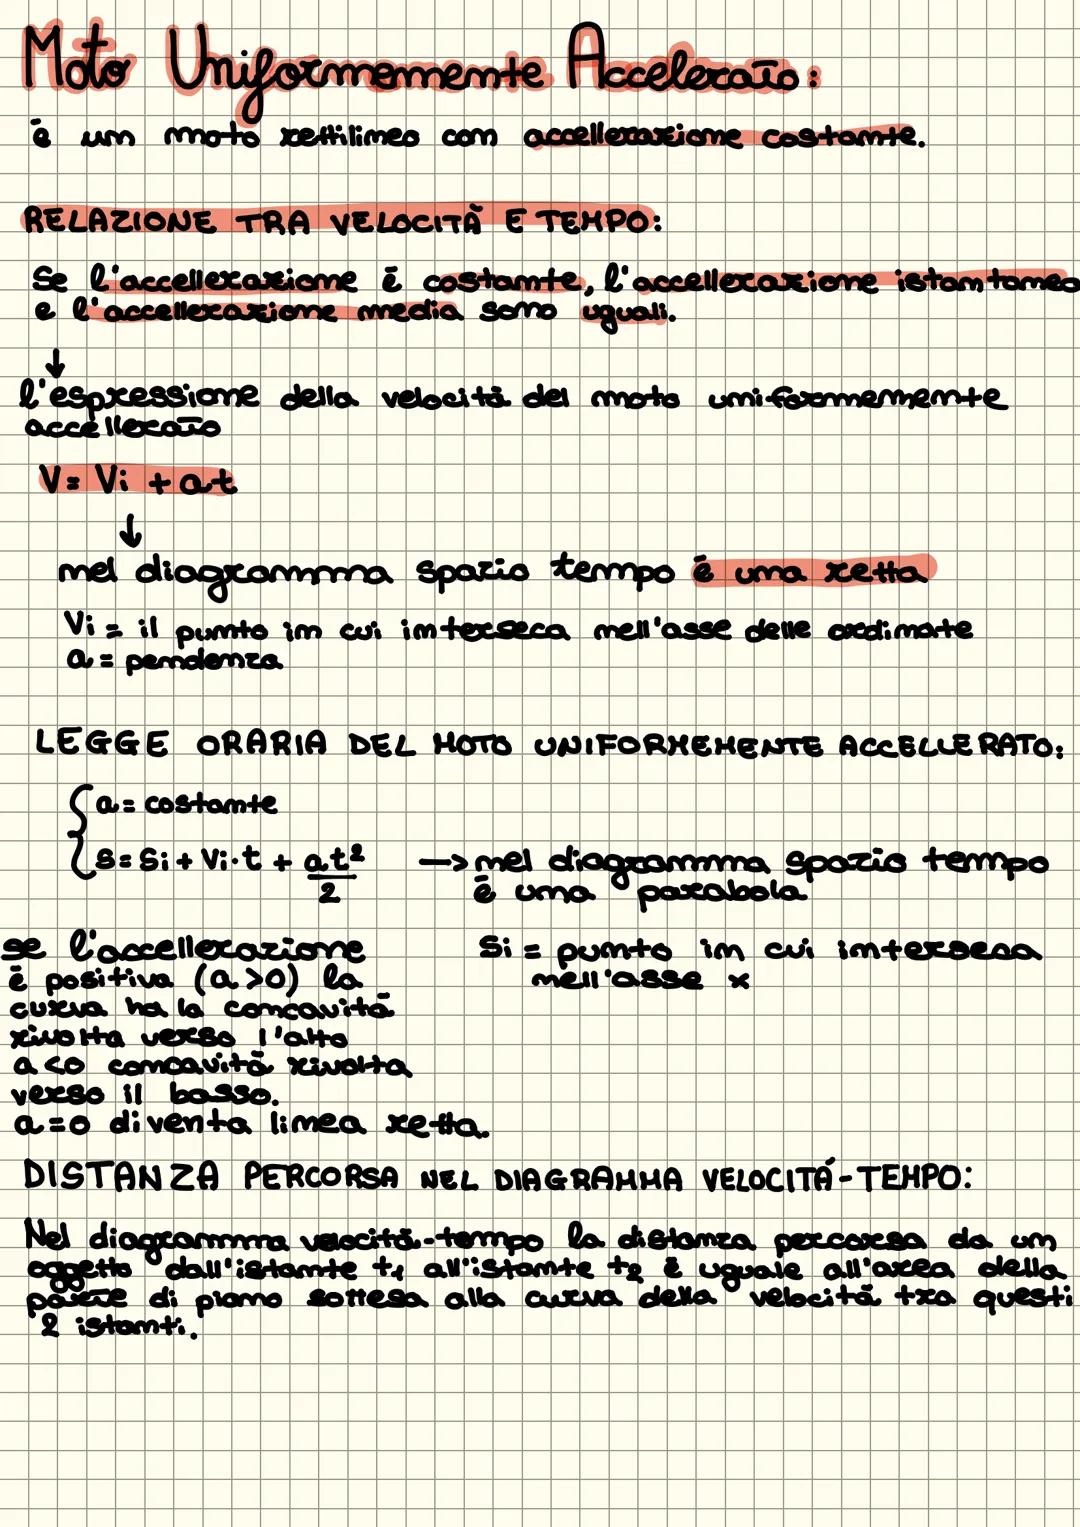 Moto Uniformemente Accelerato:
è un moto rettilineo con accellerazione costante.
RELAZIONE TRA VELOCITÀ E TEMPO:
Se l'accellerazione è costante, l'accellerazione istantanea
e l'accellerazione media sono uguali.
↓
l'espressione della velocità del moto uniformemente
accellerato
V = Vi + at
↓
nel diagramma spazio tempo è una retta
Vi = il punto in cui interseca nell'asse delle ordinate
a = pendenza
LEGGE ORARIA DEL MOTO UNIFORMEMENTE ACCELLERATO:
{ a = costante
S = Si + Vi·t + at²/2 → nel diagramma spazio tempo
è una parabola
se l'accellerazione
è positiva (a>0) la
curva ha la concavità
rivolta verso l'alto
a<0 concavità rivolta
verso il basso.
a=0 diventa linea retta.
Si = punto in cui interseca
nell'asse x
DISTANZA PERCORSA NEL DIAGRAMMA VELOCITÁ-TEMPO:
Nel diagramma velocità-tempo la distanza percorsa da un
oggetto dall'istante t₁ all'istante t₂ è uguale all'area della
parte di piano sottesa alla curva della velocità tra questi
2 istanti.